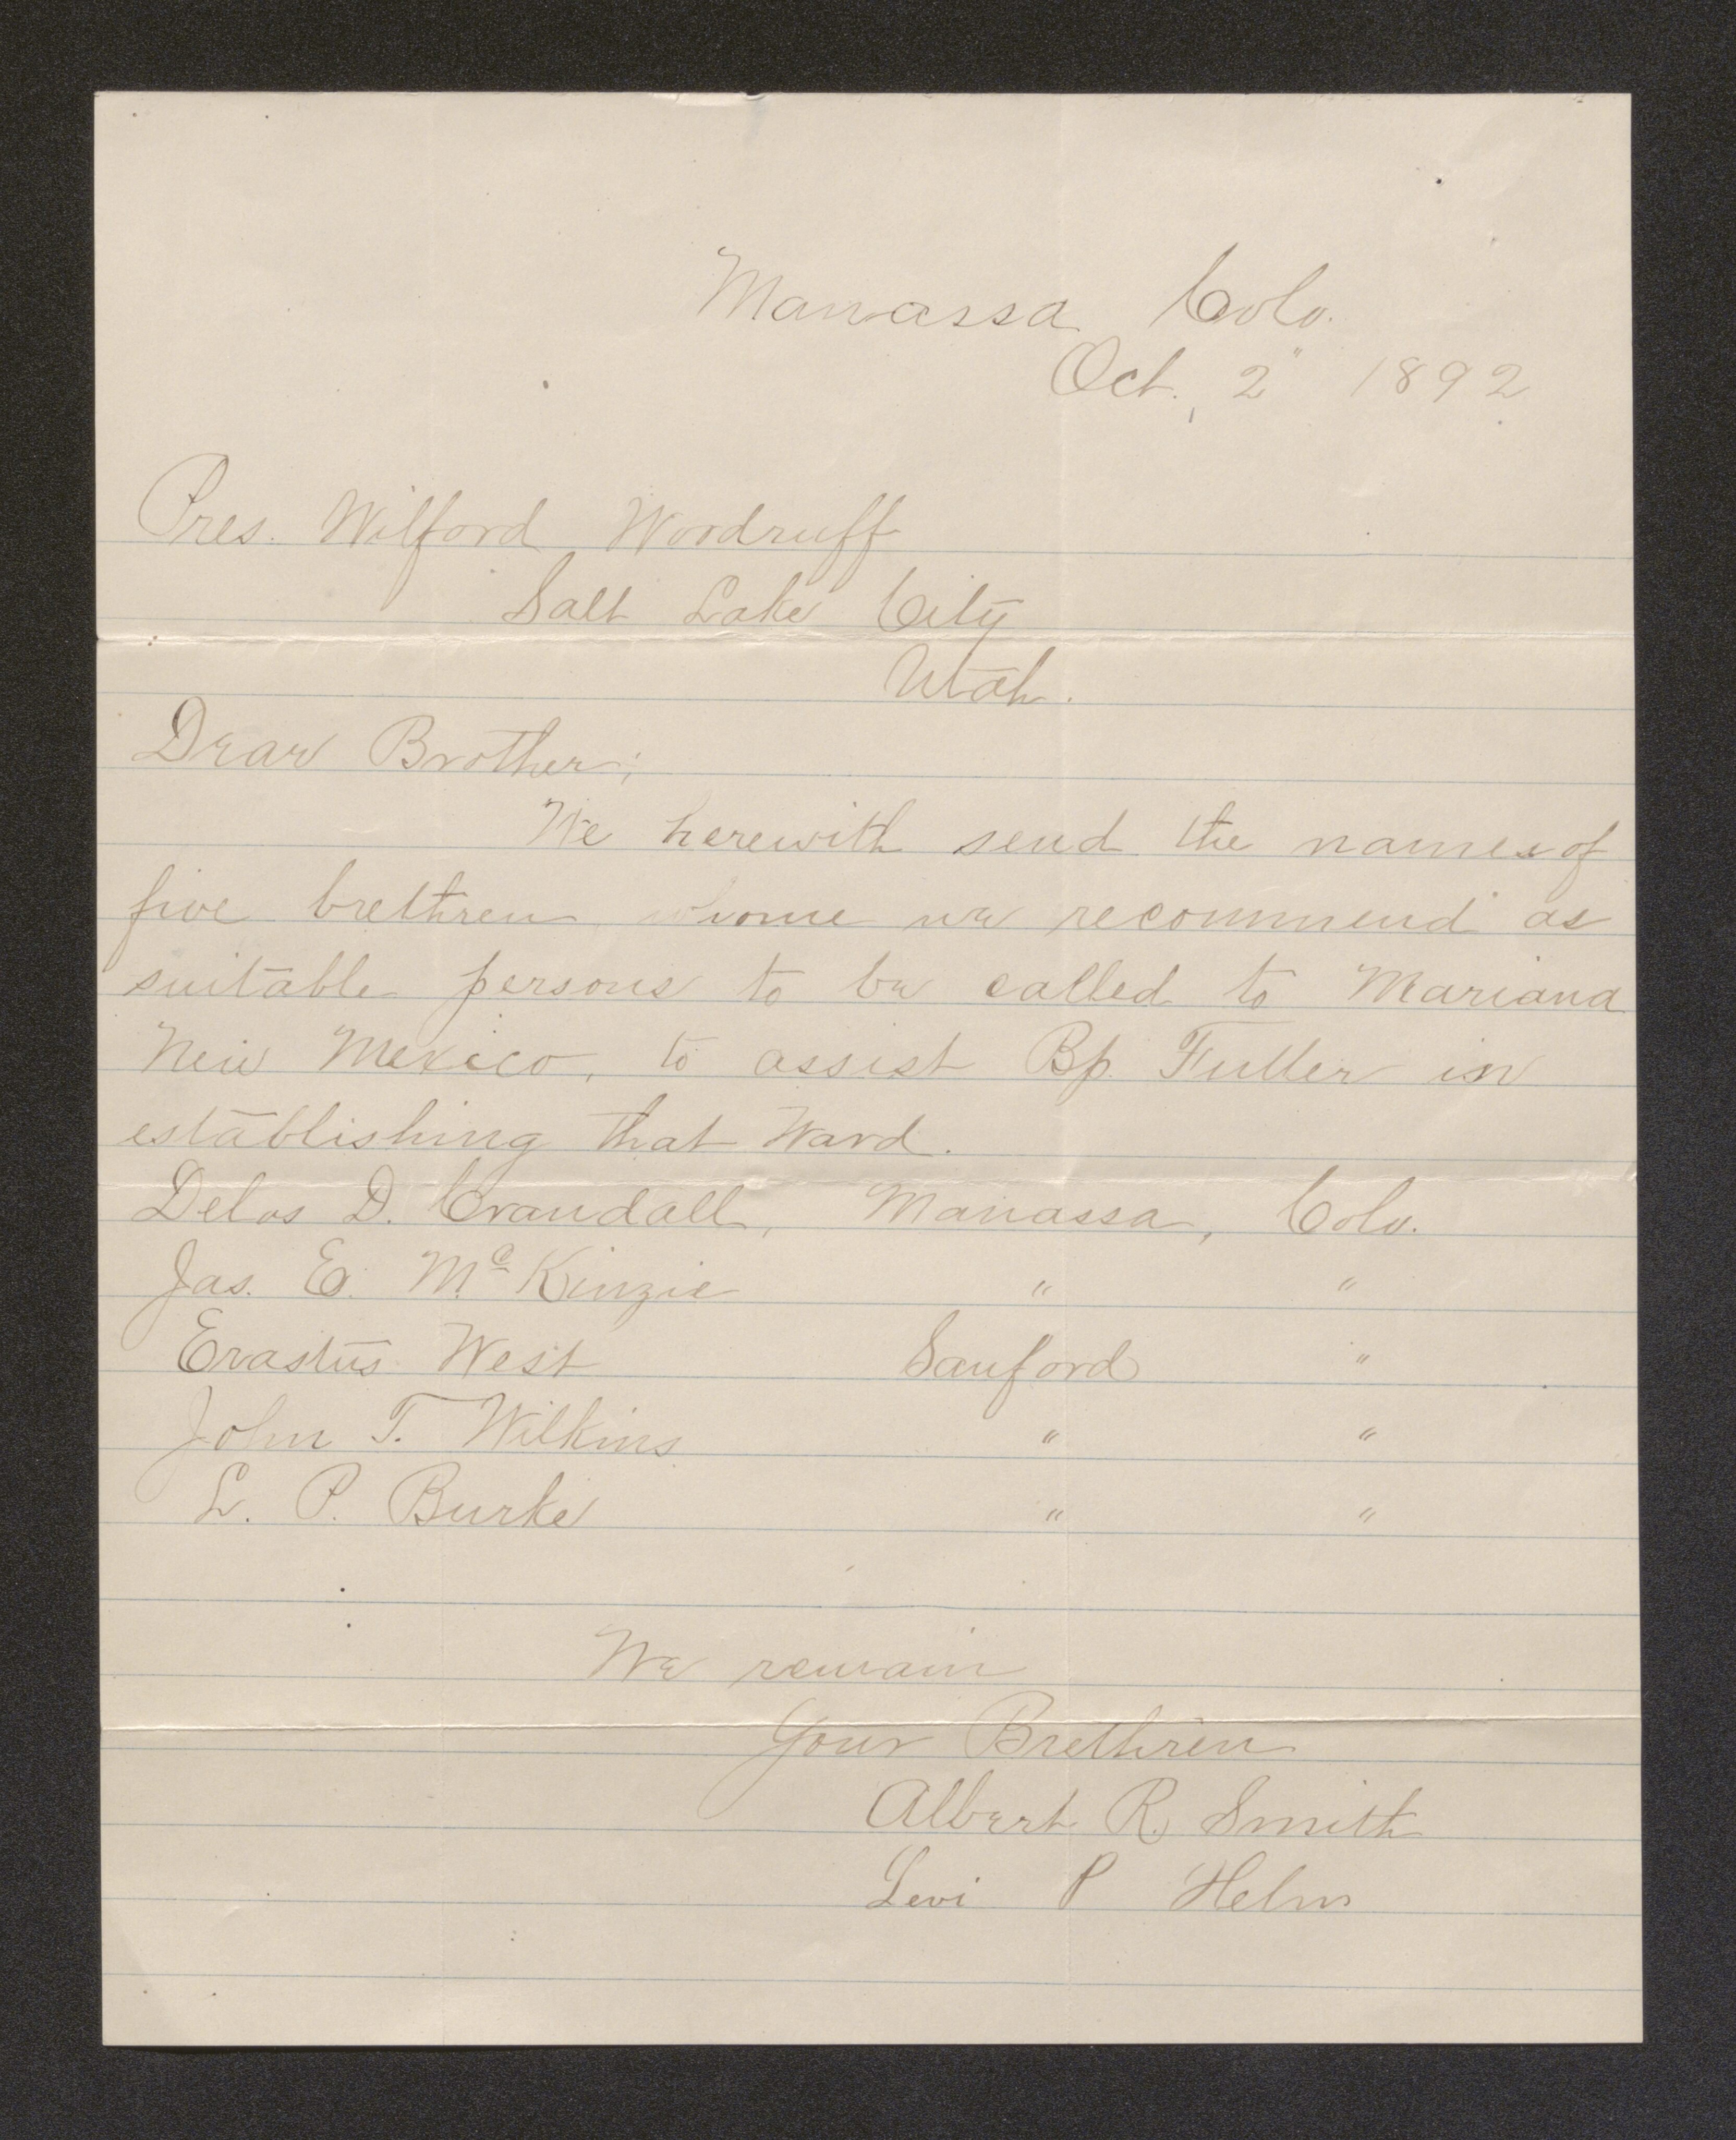 Manassa Colo.
Oct., 2" 1892
Pres. Wilford Woodruff
Salt Lake City
Utah.
Dear Brother;
We herewith send the names of
five brethren, whome we recommend as
suitable persons to be called to Mariana
New Mexico, to assist Bp. Fuller in
establishing that Ward.
Delos D. Crandall, Manassa, Colo.
Jas. E. Mc Kinzie " "
Erastus West Sanford "
John T. Wilkins " "
L. P. Burke " "
We remain
Your Brethren
Albert R. Smith
Levi P Helm